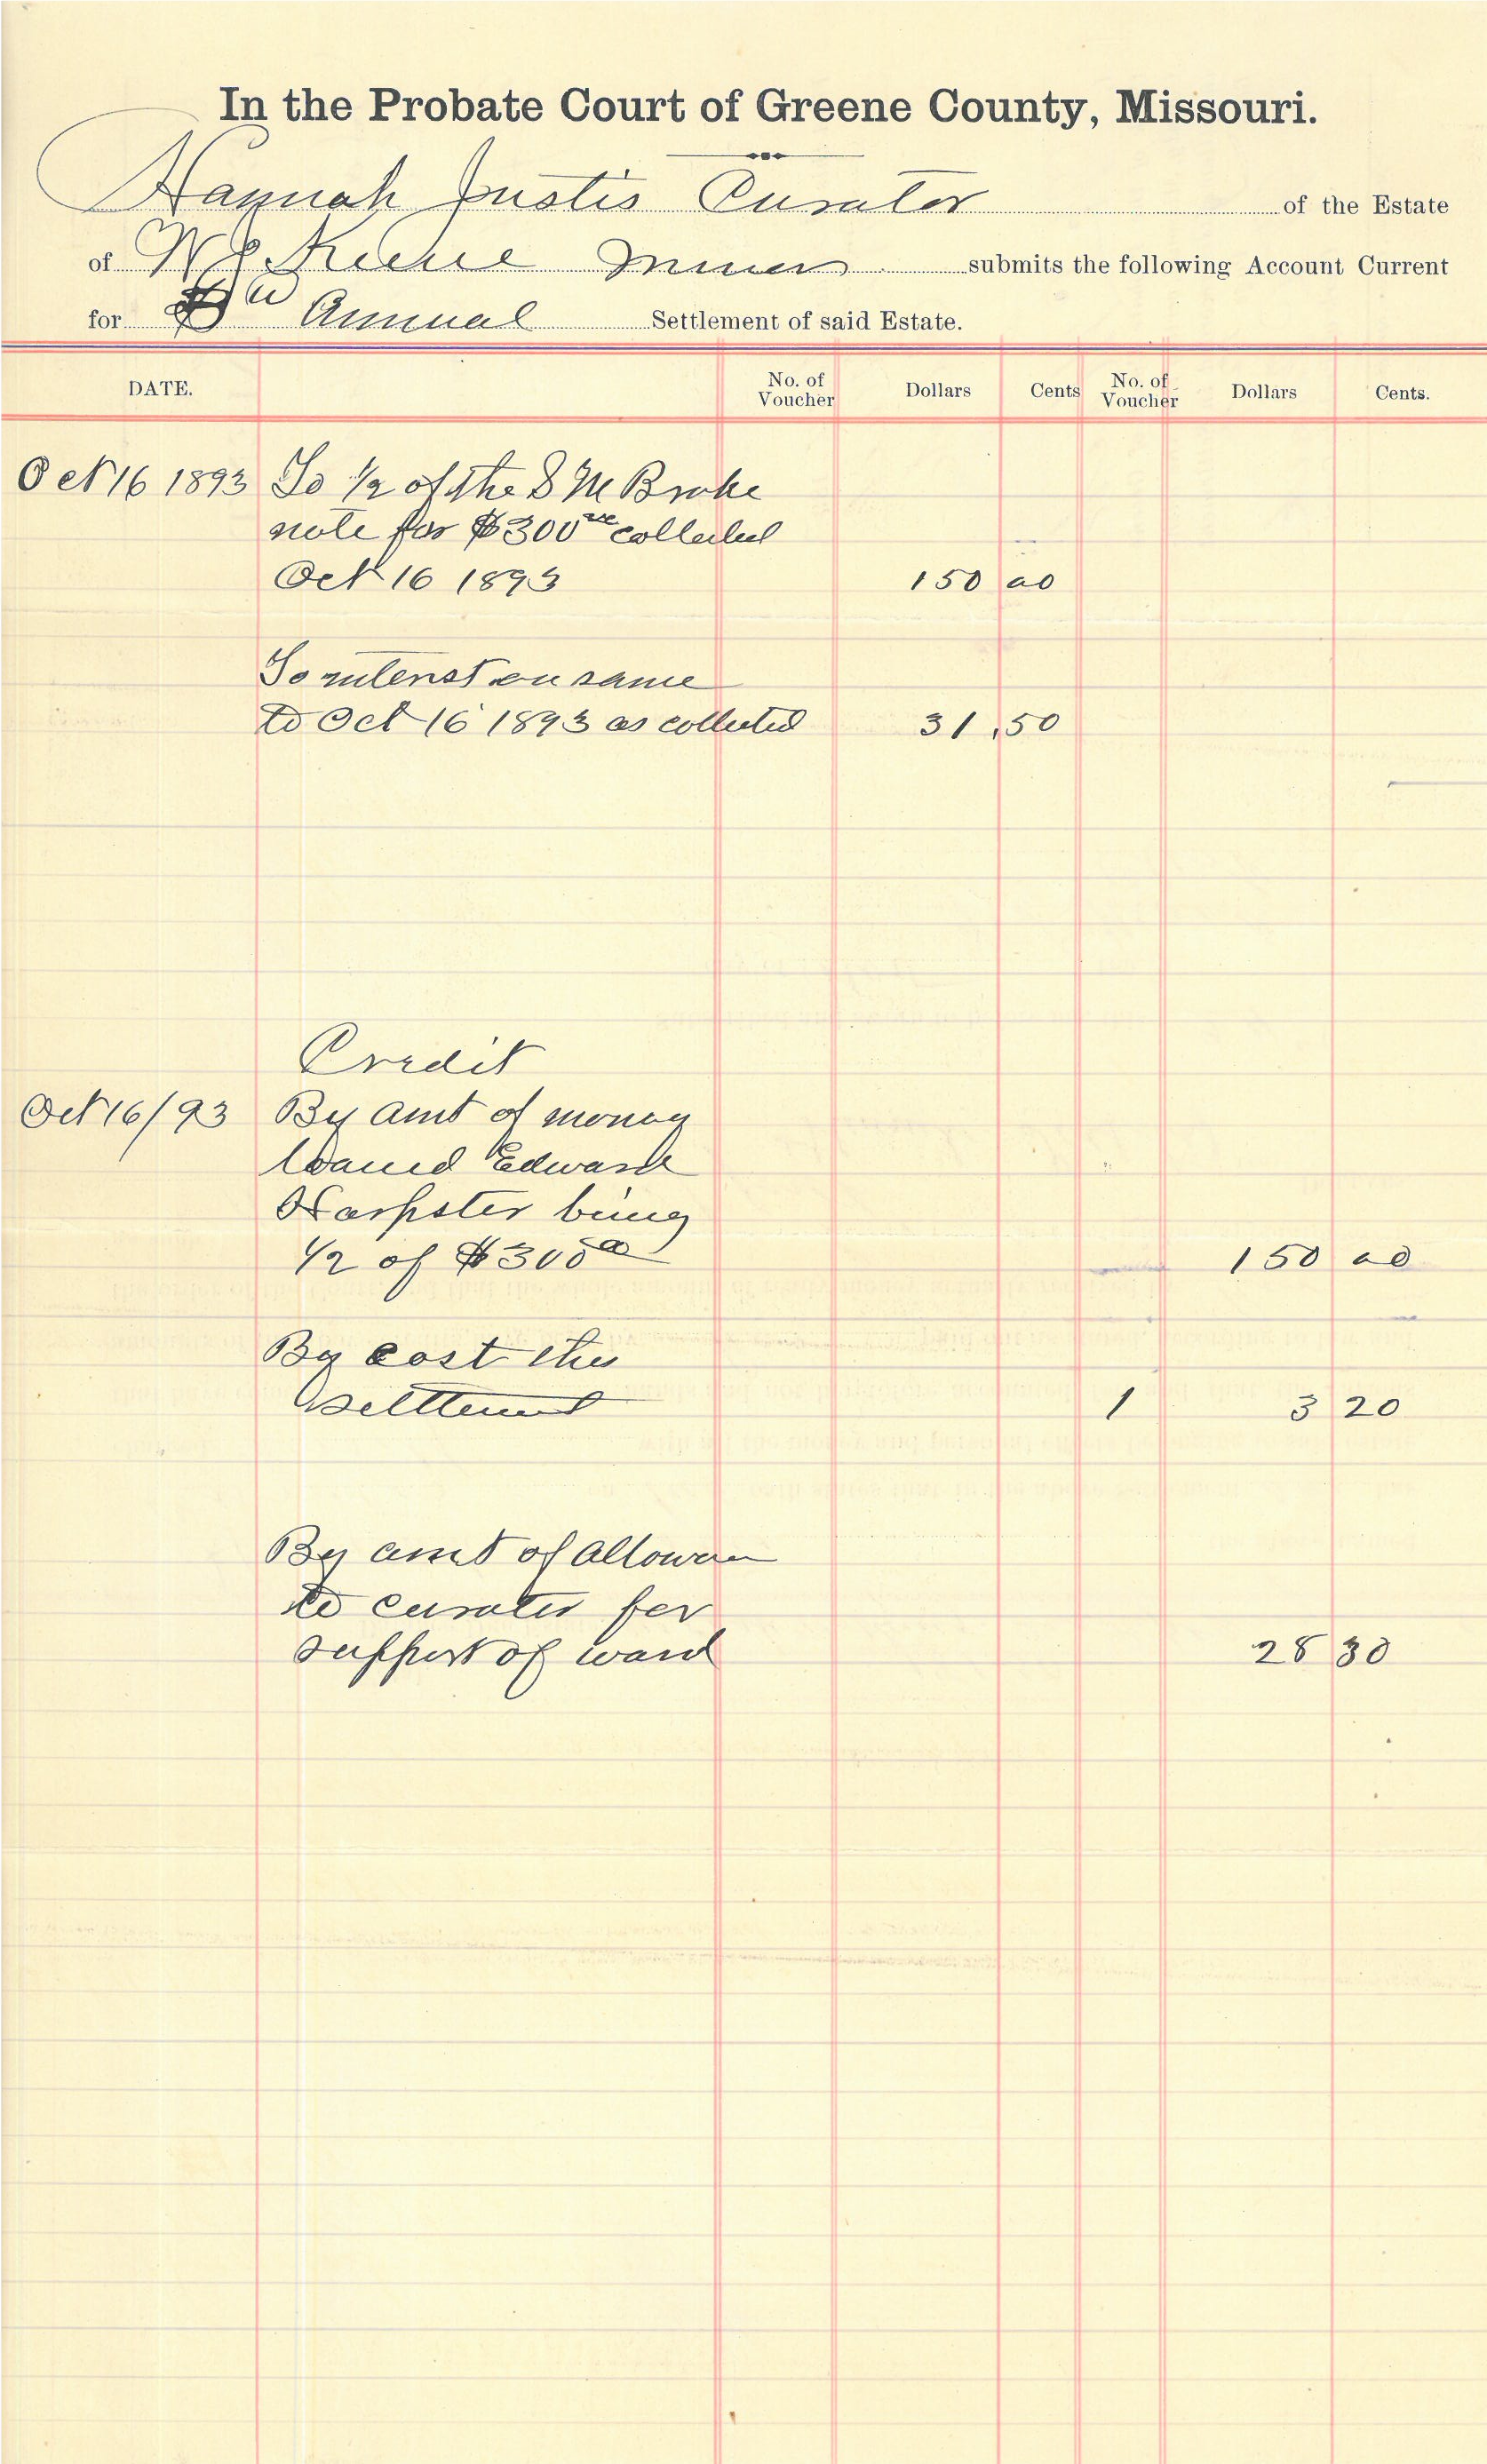 In the Probate Court of Greene County, Missouri.
Hannah Justis Curator of the Estate
of W E Keene minor submits the following Account Current
for Annual Settlement of said Estate.
DATE. No. of Voucher Dollars Cents No. of Voucher Dollars Cents.
Oct 16 1893 To 1/2 of the S M Broke
note for $300 collected
Oct 16 1893 150 00
To interest on same
to Oct 16 1893 as collected 31.50
Credit
Oct 16/93 By amt of money
loaned Edward
Harpster being
1/2 of $300 00 150 00
By cost this
settlement 1 3 20
By amt of allowance
to curator for
support of ward 28 30